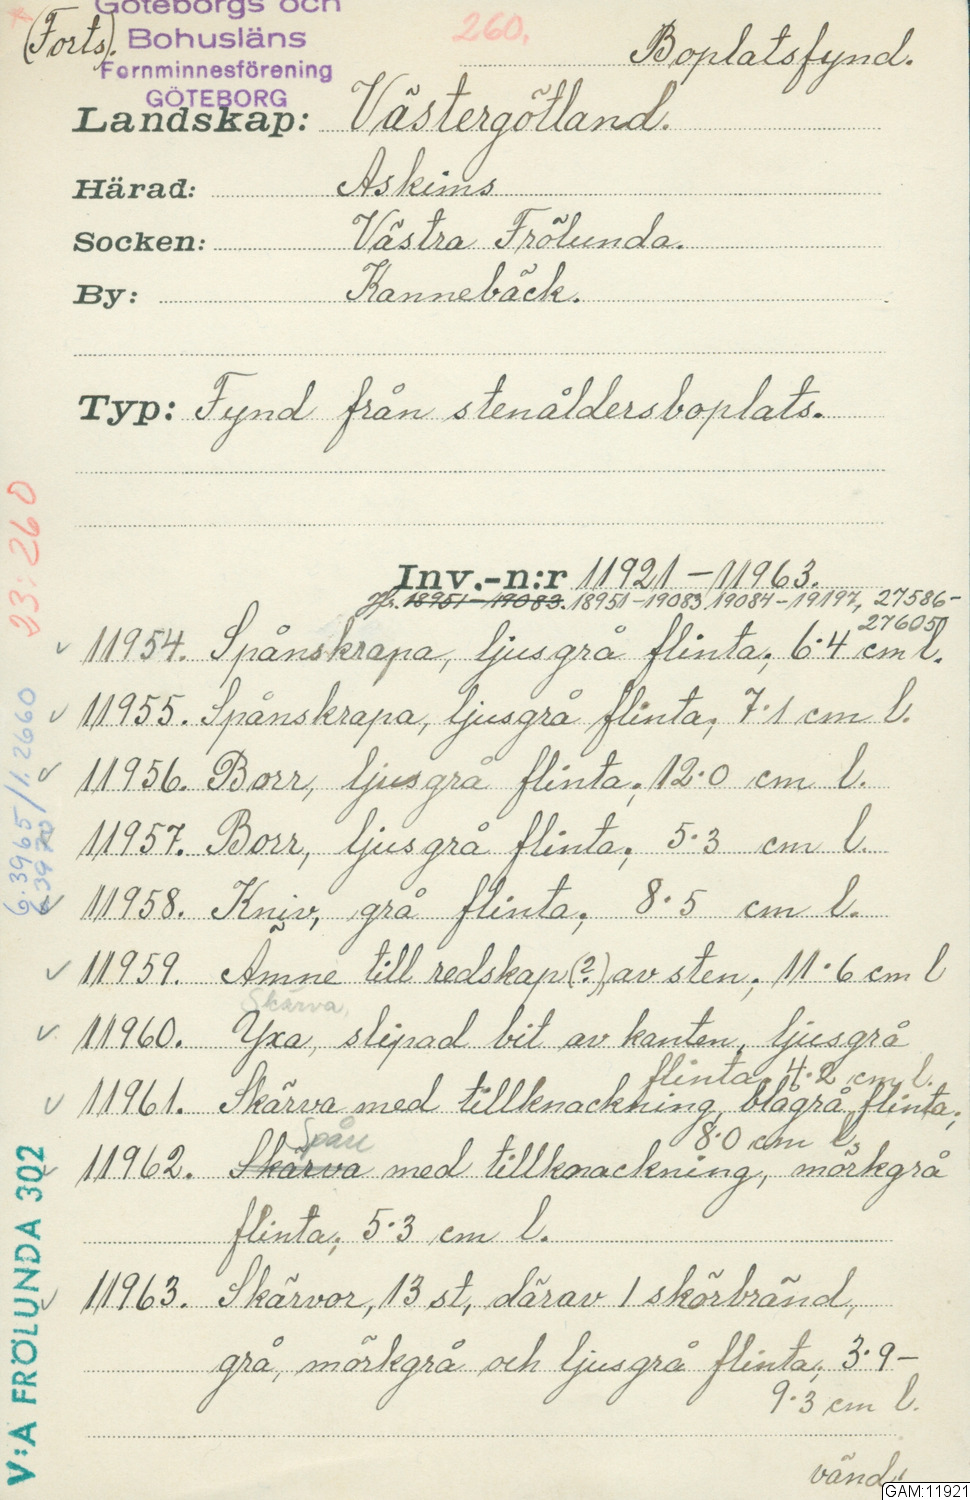 Göteborgs och
(Forts). Bohusläns 260. Boplatsfynd.
Fornminnesförening
GÖTEBORG
Landskap: Västergötland.
Härad: Askims
Socken: Västra Frölunda.
By: Kannebäck.
Typ: Fynd från stenåldersboplats.
Inv.-n:r 11921–11963.
Jfr. 18951–19083. 18951–19083, 19084–19197, 27586–
27605
11954. Spånskrapa, ljusgrå flinta; 6·4 cm l.
11955. Spånskrapa, ljusgrå flinta; 7·1 cm l.
11956. Borr, ljusgrå flinta; 12·0 cm l.
11957. Borr, ljusgrå flinta; 5·3 cm l.
11958. Kniv, grå flinta; 8·5 cm l.
11959. Ämne till redskap (?), av sten; 11·6 cm l
Skärva,
11960. Yxa, slipad bit av kanten, ljusgrå
flinta, 4·2 cm l.
11961. Skärva med tillknackning, blågrå flinta;
8·0 cm l.
Spån
11962. Skärva med tillknackning, mörkgrå
flinta; 5·3 cm l.
11963. Skärvor, 13 st, därav 1 skörbränd,
grå, mörkgrå och ljusgrå flinta; 3·9–
9·3 cm l.
vänd!
23:260
6.3965/1.2660
V:A FRÖLUNDA 302
GAM:11921